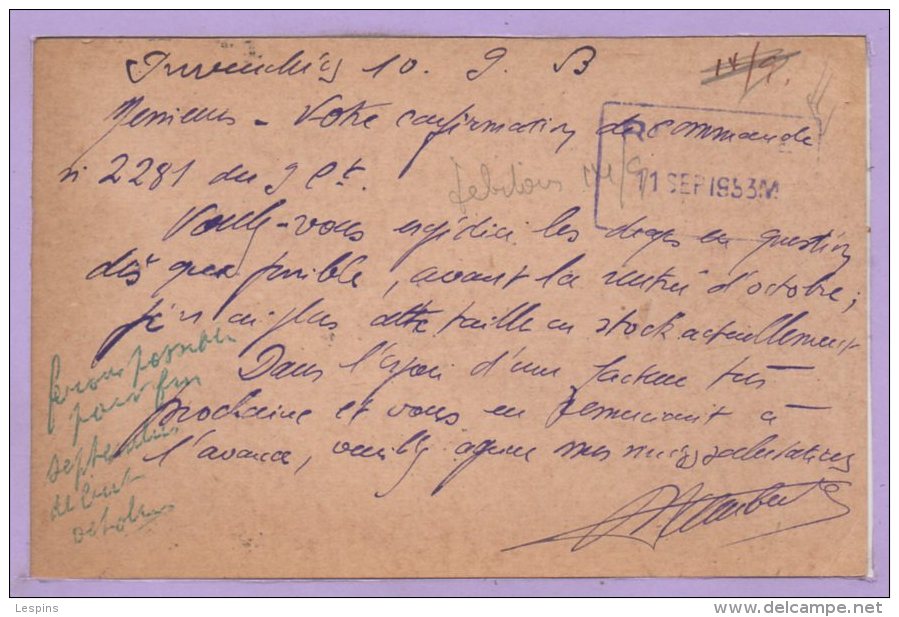 10. 9. 53
14/9.
Messieurs - Votre confirmation de commande
n° 2281 du 9 Ct.
14/9
11 SEP 1953 M
Voulez-vous expédier les draps en question
dès que possible, avant la rentrée d'octobre;
je n'ai plus cette taille en stock actuellement
Dans l'espoir d'une facture très
prochaine et vous en remerciant à
l'avance, veuillez agréer mes salutations
ferons possible
pour fin
septembre
début
octobre
Lespins
www.delcampe.net